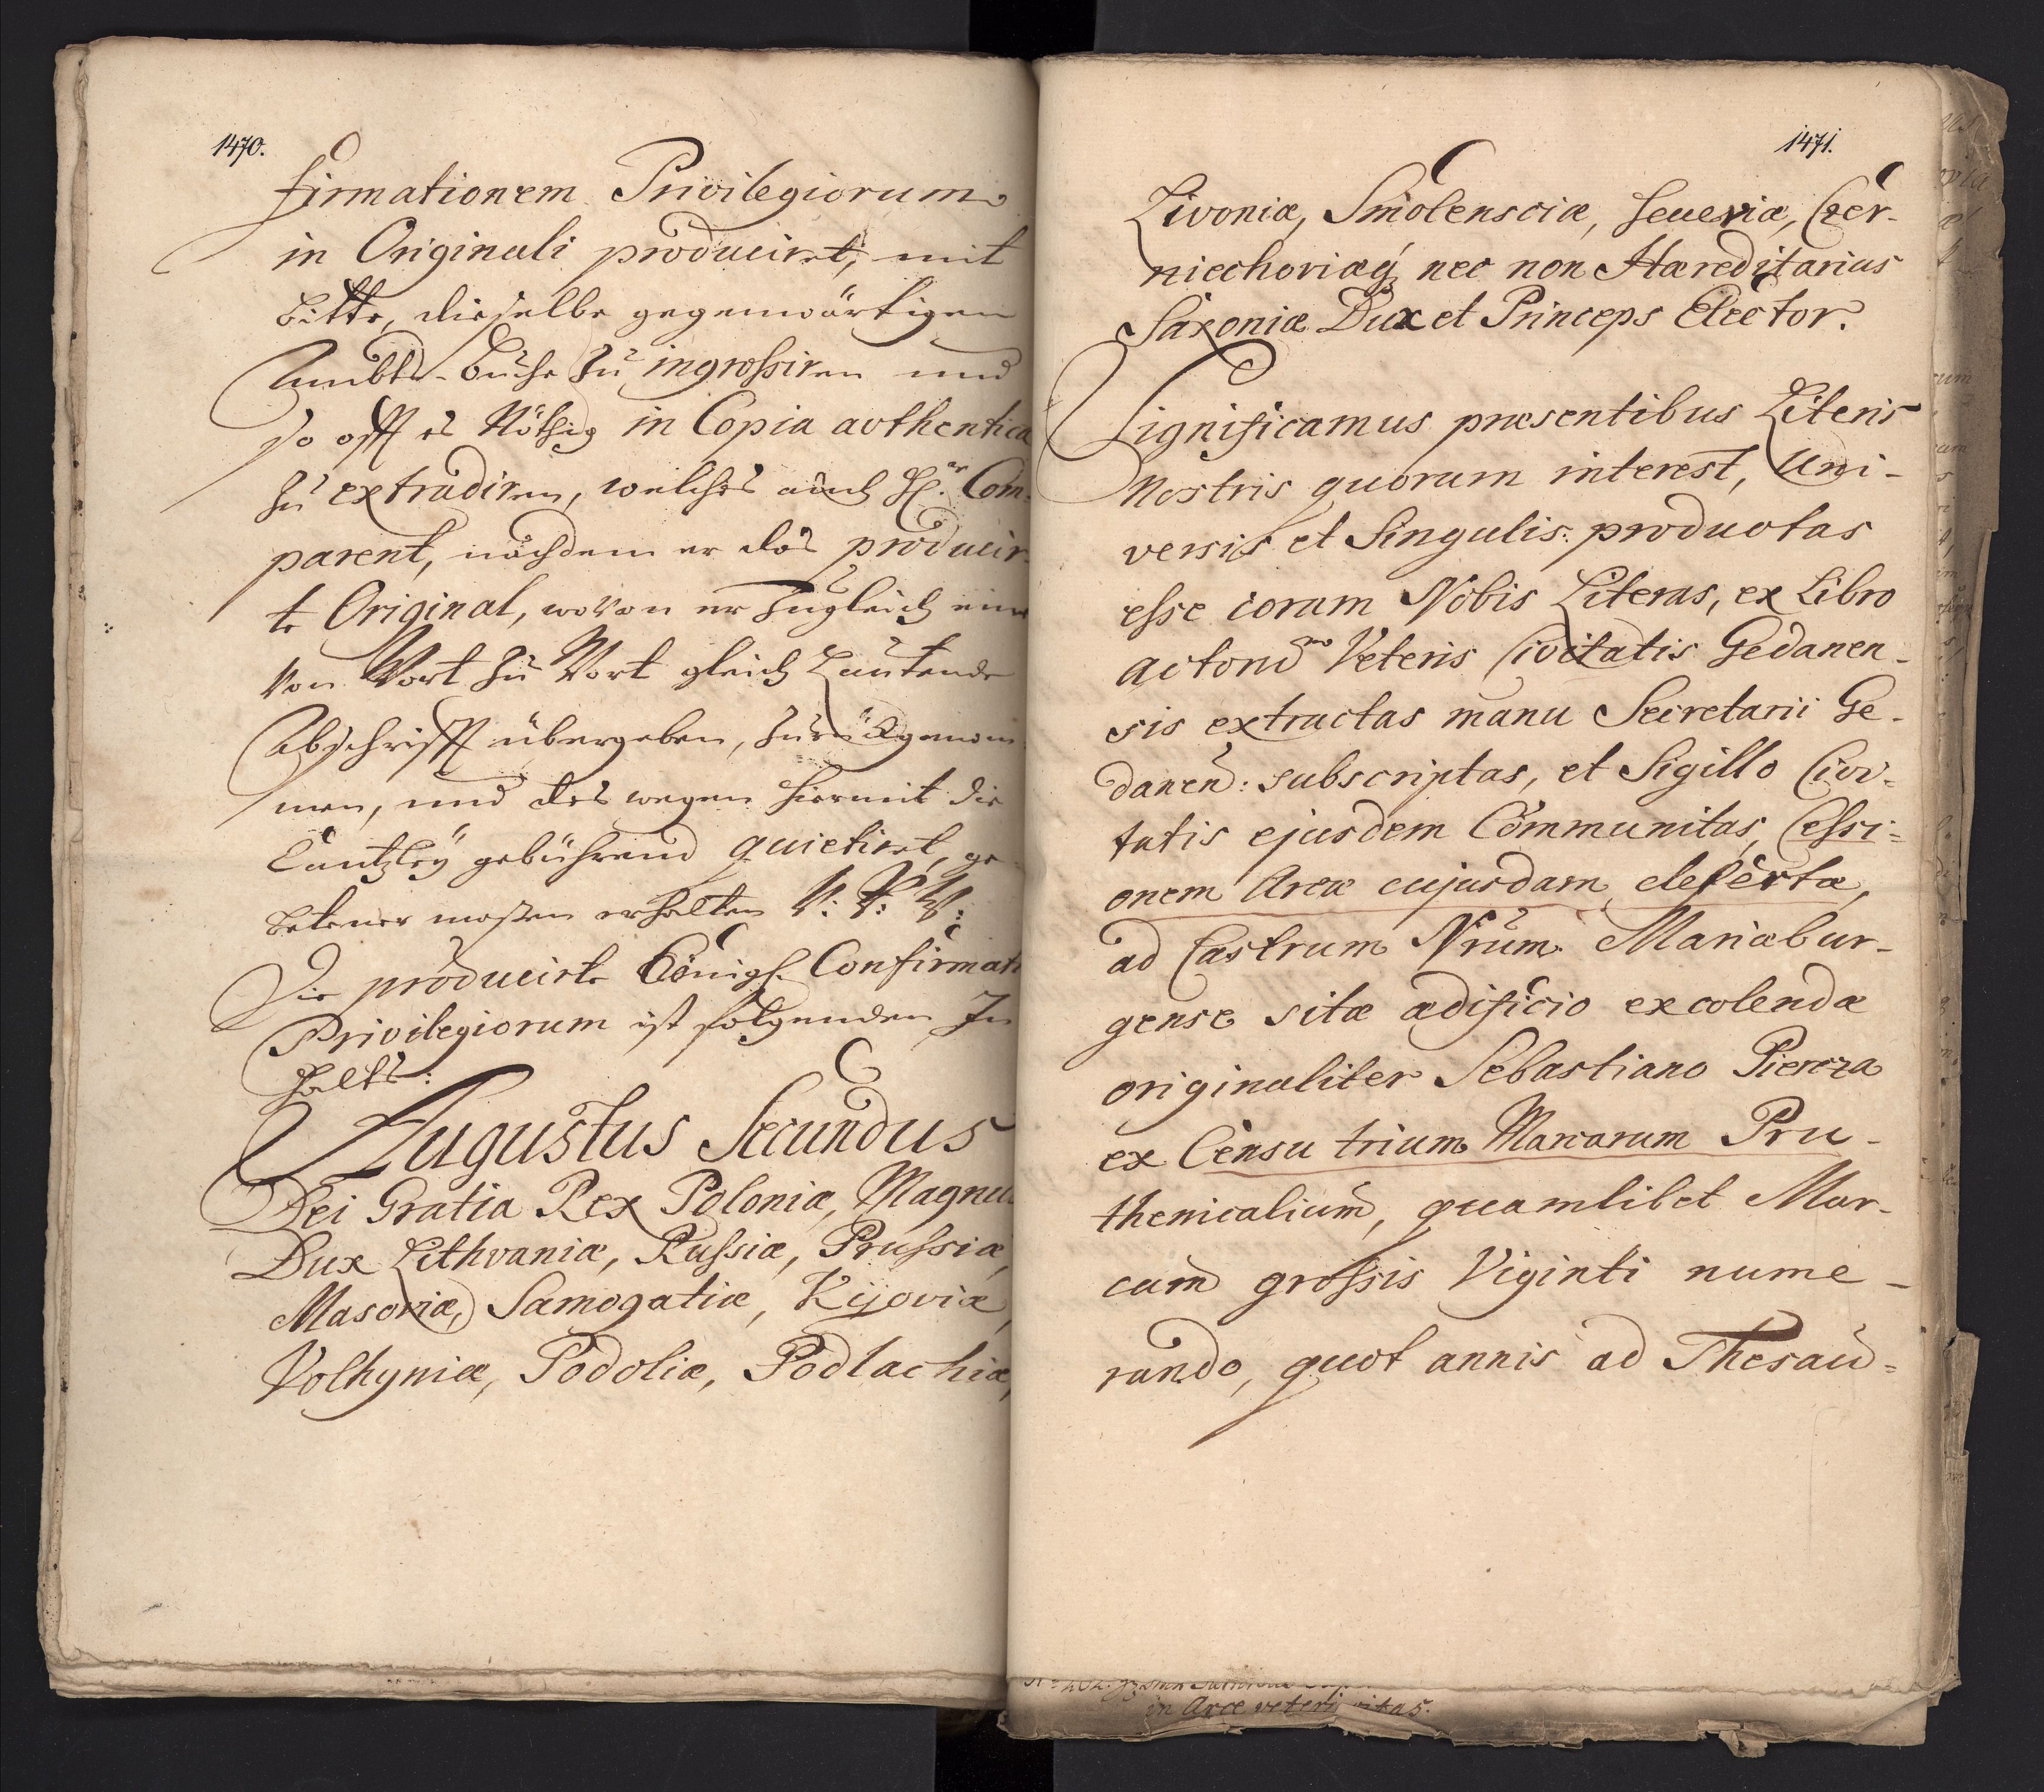 1470.
firmationem Privilegiorum
in Originali produciret, mit
bitte, dieselbe gegenwärtigen
Ambts-Buche zu ingrossiren und
so offt es Nöthig in Copia authentica
zu extradiren, welches auch H.er Com-
parent, nachdem er das producir-
te Original, wovon er Zugleich eine
Von Wort zu Wort gleich Lautende
Abschrifft übergeben, zurückgenom
men, und des wegen hiermit die
Cantzley gebührend quietiret, ge-
betener maßen erhalten V: R: W:
Die producirte Königl. Confirmat
Privilegiorum ist folgenden In
halts:
Augustus Secundus
Dei Gratia Rex Poloniæ, Magnus
Dux Lithvaniæ, Russiæ, Prussiæ,
Masoviæ, Samogatiæ, Kijoviæ,
Volhyniæ, Podoliæ, Podlachiæ,
1471.
Livoniæ, Smolensciæ, Seueriæ, Czer-
niechoviæq, nec non Hæreditarius
Saxoniæ Dux et Princeps Elector.
Significamus præsentibus Literis
Nostris quorum interest, Uni-
versis et Singulis: productas
esse coram Nobis Literas, ex Libro
Actorum Veteris Civitatis Gedanen-
sis extractas manu Secretarii Ge-
danen: subscriptas, et Sigillo Civi-
tatis ejusdem Communitas, Cessi-
onem Areæ cujusdam desertæ,
ad Castrum Nrum Mariæbur-
gense sitæ ædificio excolendæ
originaliter Sebastiano Piencza
ex Censu trium Marcarum Pru-
thenicalium, quamlibet Mar-
cam grossis Viginti nume-
rando, quot annis ad Thesau-
in Arce veteri